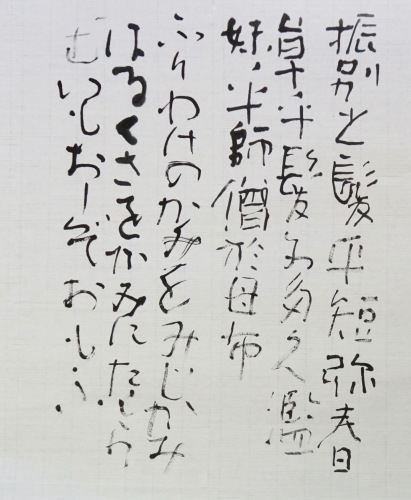 振別之髪乎短弥春
草乎髪尓多久濫
妹乎師僧於母布
ふりわけのかみをみじかみ
はるくさをかみにたくら
むいもおしぞおもふ